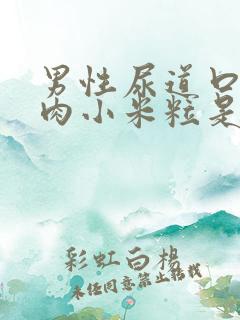 男性尿道口
肉小米粒是
彩虹白楊
未经同意禁止转载